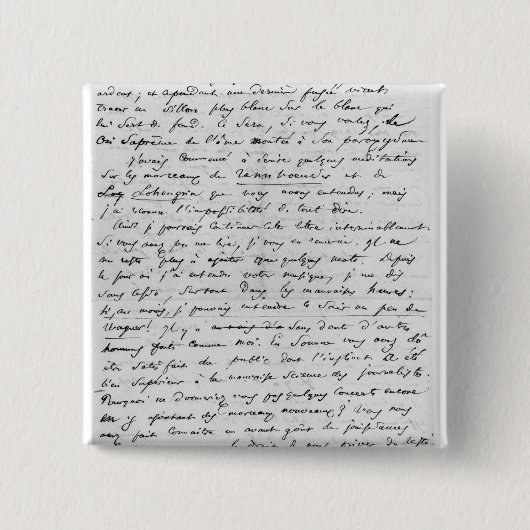 ardent; et cependant une dernière fusée vient
tracer un sillon plus blanc sur le blanc qui
lui sert de fond. Ce sera, si vous voulez, le
cri suprême de l'âme montée à son paroxysme.
J'avais commencé à écrire quelques méditations
sur les morceaux de Tannhoeuser et de
Lohengrin que nous avons entendus; mais
j'ai reconnu l'impossibilité de tout dire.
Ainsi je pourrais continuer cette lettre interminablement.
Si vous avez pu me lire, je vous en remercie. Il ne
me reste plus à ajouter que quelques mots. Depuis
le jour où j'ai entendu votre musique, je me dis
sans cesse, surtout dans les mauvaises heures:
si, au moins, je pouvais entendre ce soir un peu de
Wagner! Il y a sans doute d'autres
hommes faits comme moi. En somme vous avez dû
être satisfait du public dont l'instinct a été
bien supérieur à la mauvaise science des journalistes.
Pourquoi ne donneriez vous pas quelques concerts encore
en y ajoutant des morceaux nouveaux? Vous nous
avez fait connaître un avant goût de jouissances
le droit de nous priver du reste